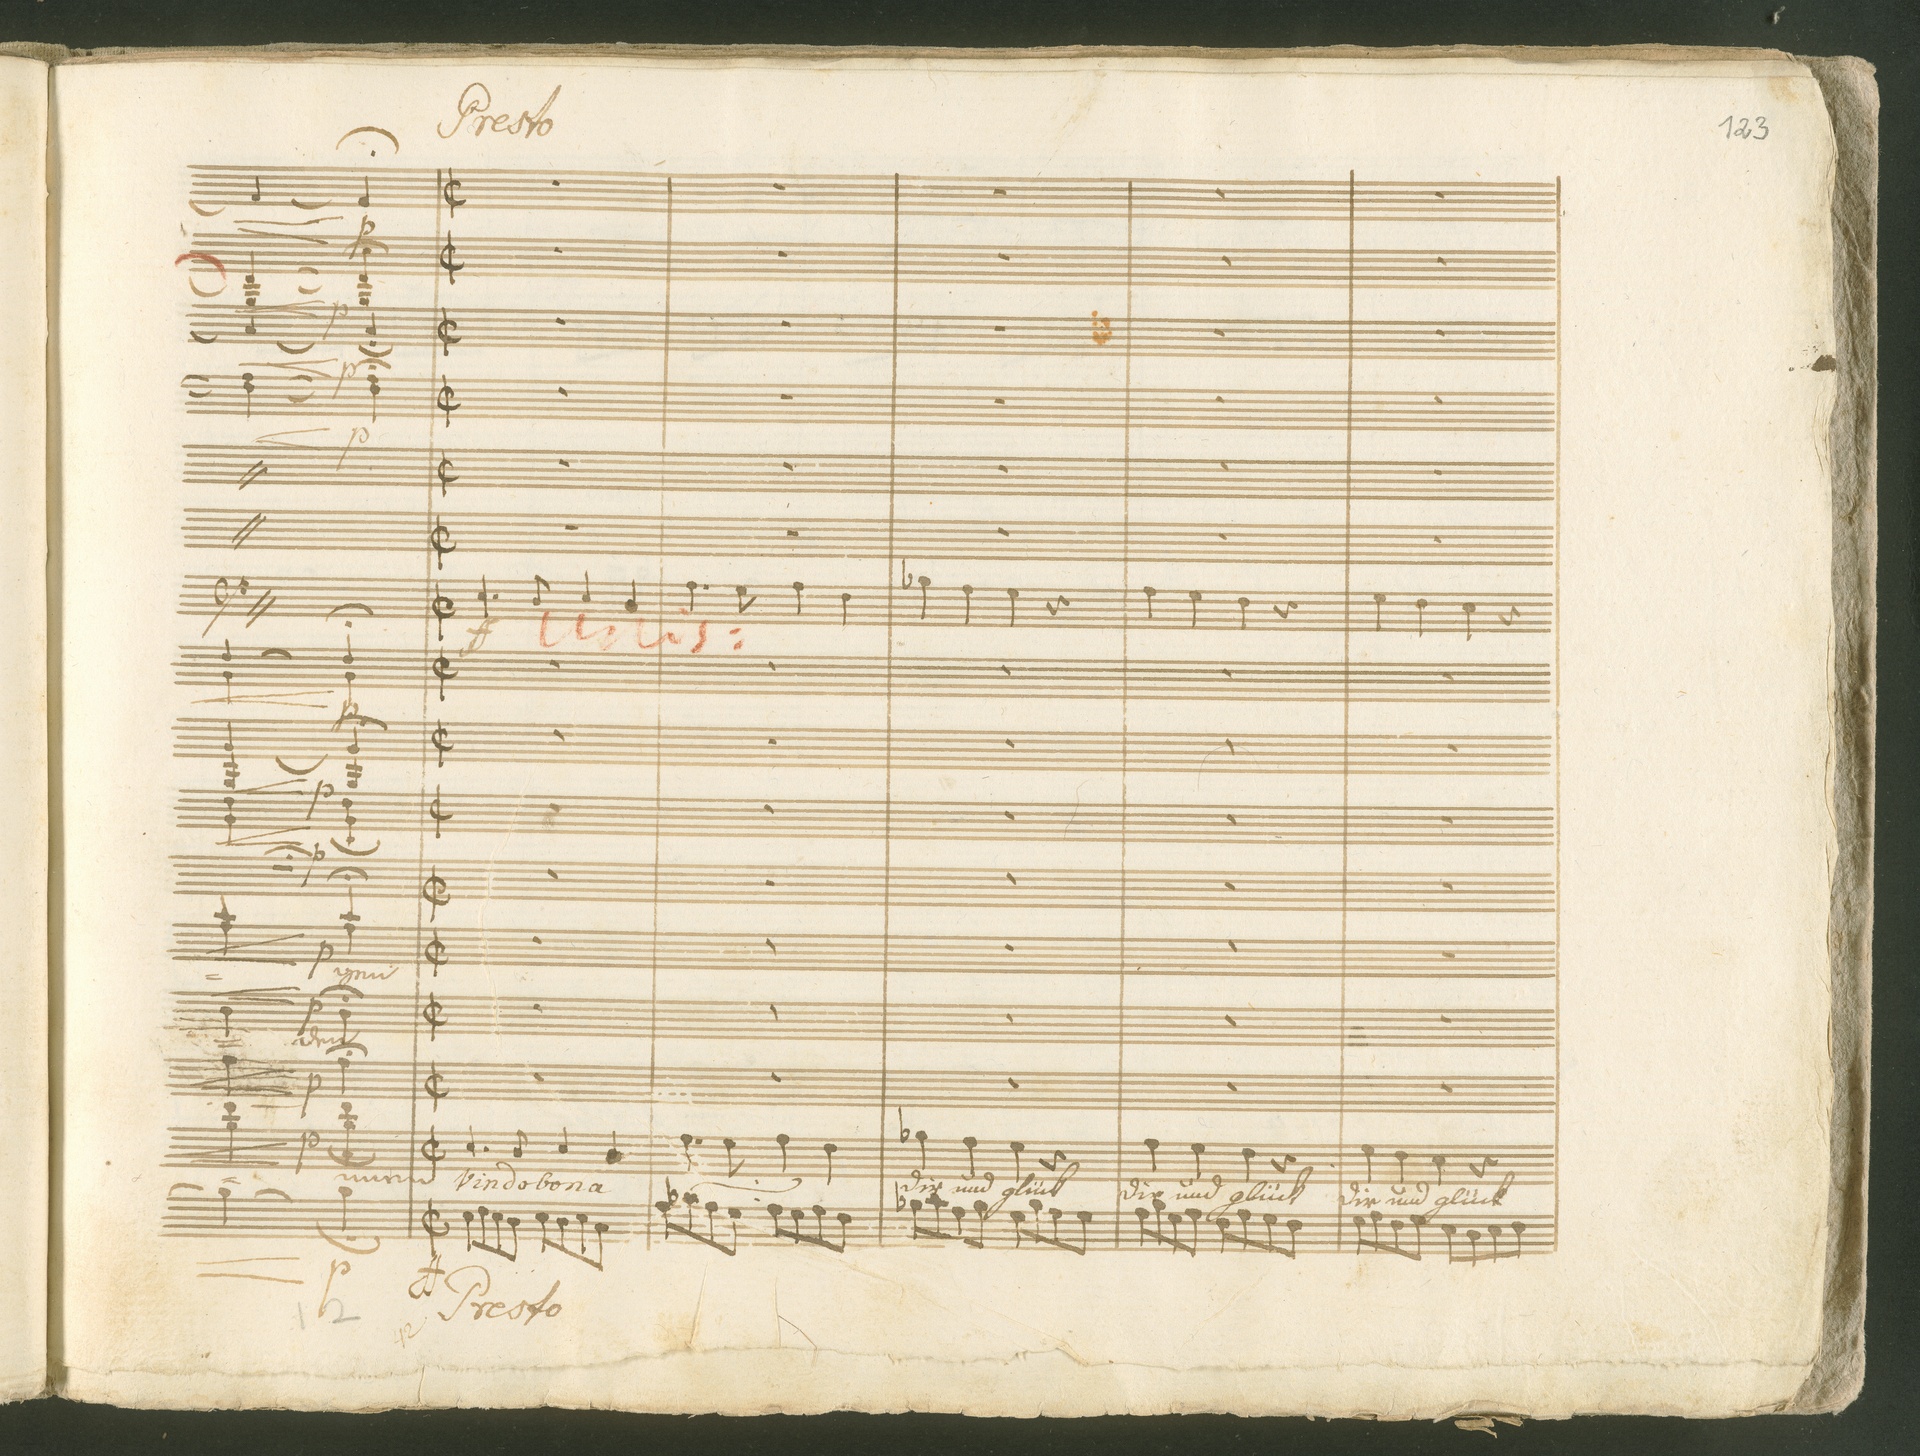 Presto
123
p
p
p
p
ff Unis:
p
p
p
p
p
gen
p
den
p
p
Vindobona dir und glück dir und glück dir und glück
p ff
Presto
12